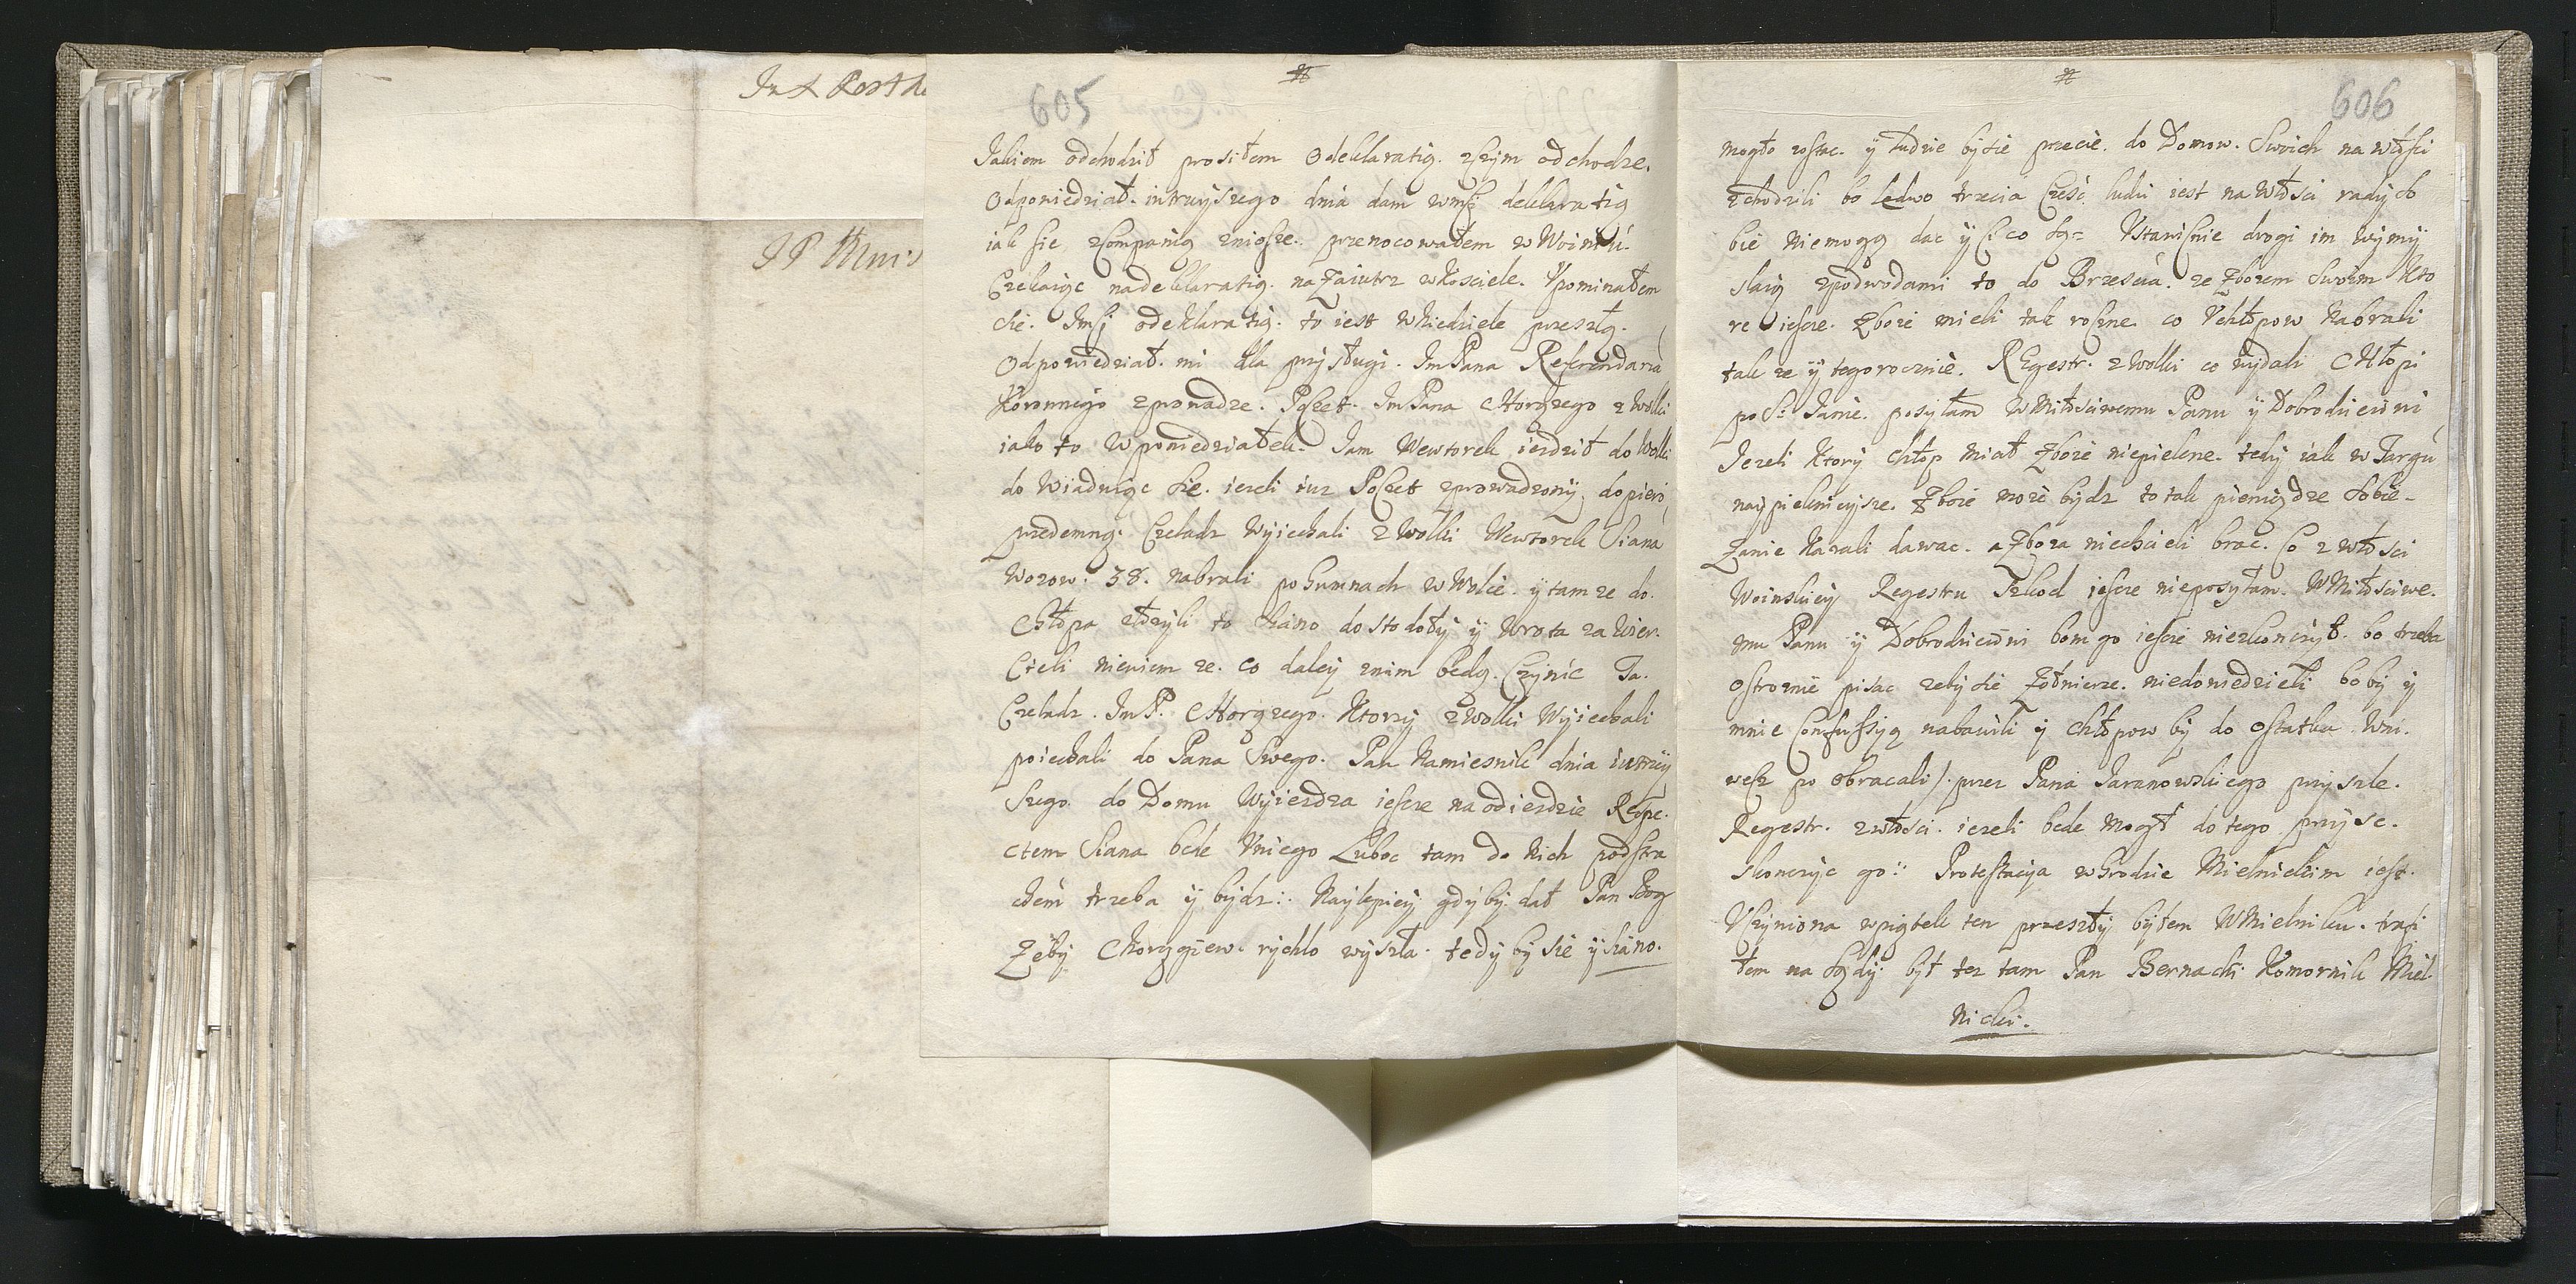 605
Jakiem odchodził prosiłem o deklaratią. zczym odchodze.
Odpowiedział. intrzyszego dnia dam wmsci deklaratią
iak sie zkompanią zniosze. przenocowałem w Woiniu.
Czekaiąc na deklaratią. na zaiutrz wkosciele. Upominałem
sie. Jmsci o deklaratią. to iest w Niedziele przeszłą.
Odpowiedział. mi dla przysługi. JmPana Referendaria
Koronnego zprowadze. Poczet. JmPana Chorązego z Wolki
iako to W poniedziałek. Jam Wewtorek iezdził do Wolki
do Wiaduiąc sie. iezeli iuz Poczet zprowadzony, dopiero
przedemną. Czeladz Wyiechali z Wolki Wewtorek Siana
Wozow. 38. nabrali po Gumnach w Wolce. y tam ze do.
Chłopa złozyli to siano do stodoły y Wrota zawier.
cieli niewiem ze. co daley znim bedą. Czynic Ta.
Czeladz. JmP. Chorązego. Ktorzy z Wolki Wyiechali
poiechali do Pana Swego. Pan Namiesnik dnia iutrzey
szego. do Domu Wyiezdza iescze na odiezdzie Respe.
ctem Siana bede Uniego Luboc tam do Nich postra
chem trzeba y bydz:. Naylepiey gdyby dał Pan Bog
Zeby Chorągiew. rychlo wyszla. tedy by sie y siano.
606
mogło zostac. y ludzie by sie przecie. do Domow. Swoich na włosci
zchodzili bo ledwo trzecia Czesc ludu iest na Włosci rady so
bie niemogą dac y ci co są= Ustawicnie drogi im wymy
slaią zpodwodami to do Brzescia. ze Zbozem Swoim Kto
re iescze. Zboze mieli tak roczne. co Uchłopow Nabrali
tak ze y tegorocznie. Regestr. z Wolki co wydali Chłopi
po S: Janie. posyłam WMiłosciwemu Panu y Dobrodzieiowi
Jezeli Ktory chłop miał Zboze niepielene. tedy iak w Targu
naypieknieysze. Zboze moze bydz to tak pieniądze sobie.
Zanie Kazali dawac. a Zboza niechcieli brac. Co z włosci
Woinskiey Regestru Szkod iescze nieposyłam. WMiłosciwe.
mu Panu y Dobrodzieiowi bom go iescze niezkonczył. bo trzeba
ostroznie pisac zeby sie Zołnierze. niedowiedzieli bo by y
mnie Confussyą nabawili y chłopow by do ostatku Wni.
wecz po obracali/. przez Pana Jaranowskiego przyszle.
Regestr. zwłosci. iezeli bede Mogł do tego przyisc.
skonczyc go:. Protestacya wGrodzie Mielnickim iest.
Uczyniona wpiątek ten przeszły byłem WMielniku. trafi
łem na Sądy. był tez tam Pan Bernacki Komornik Miel
nicki.